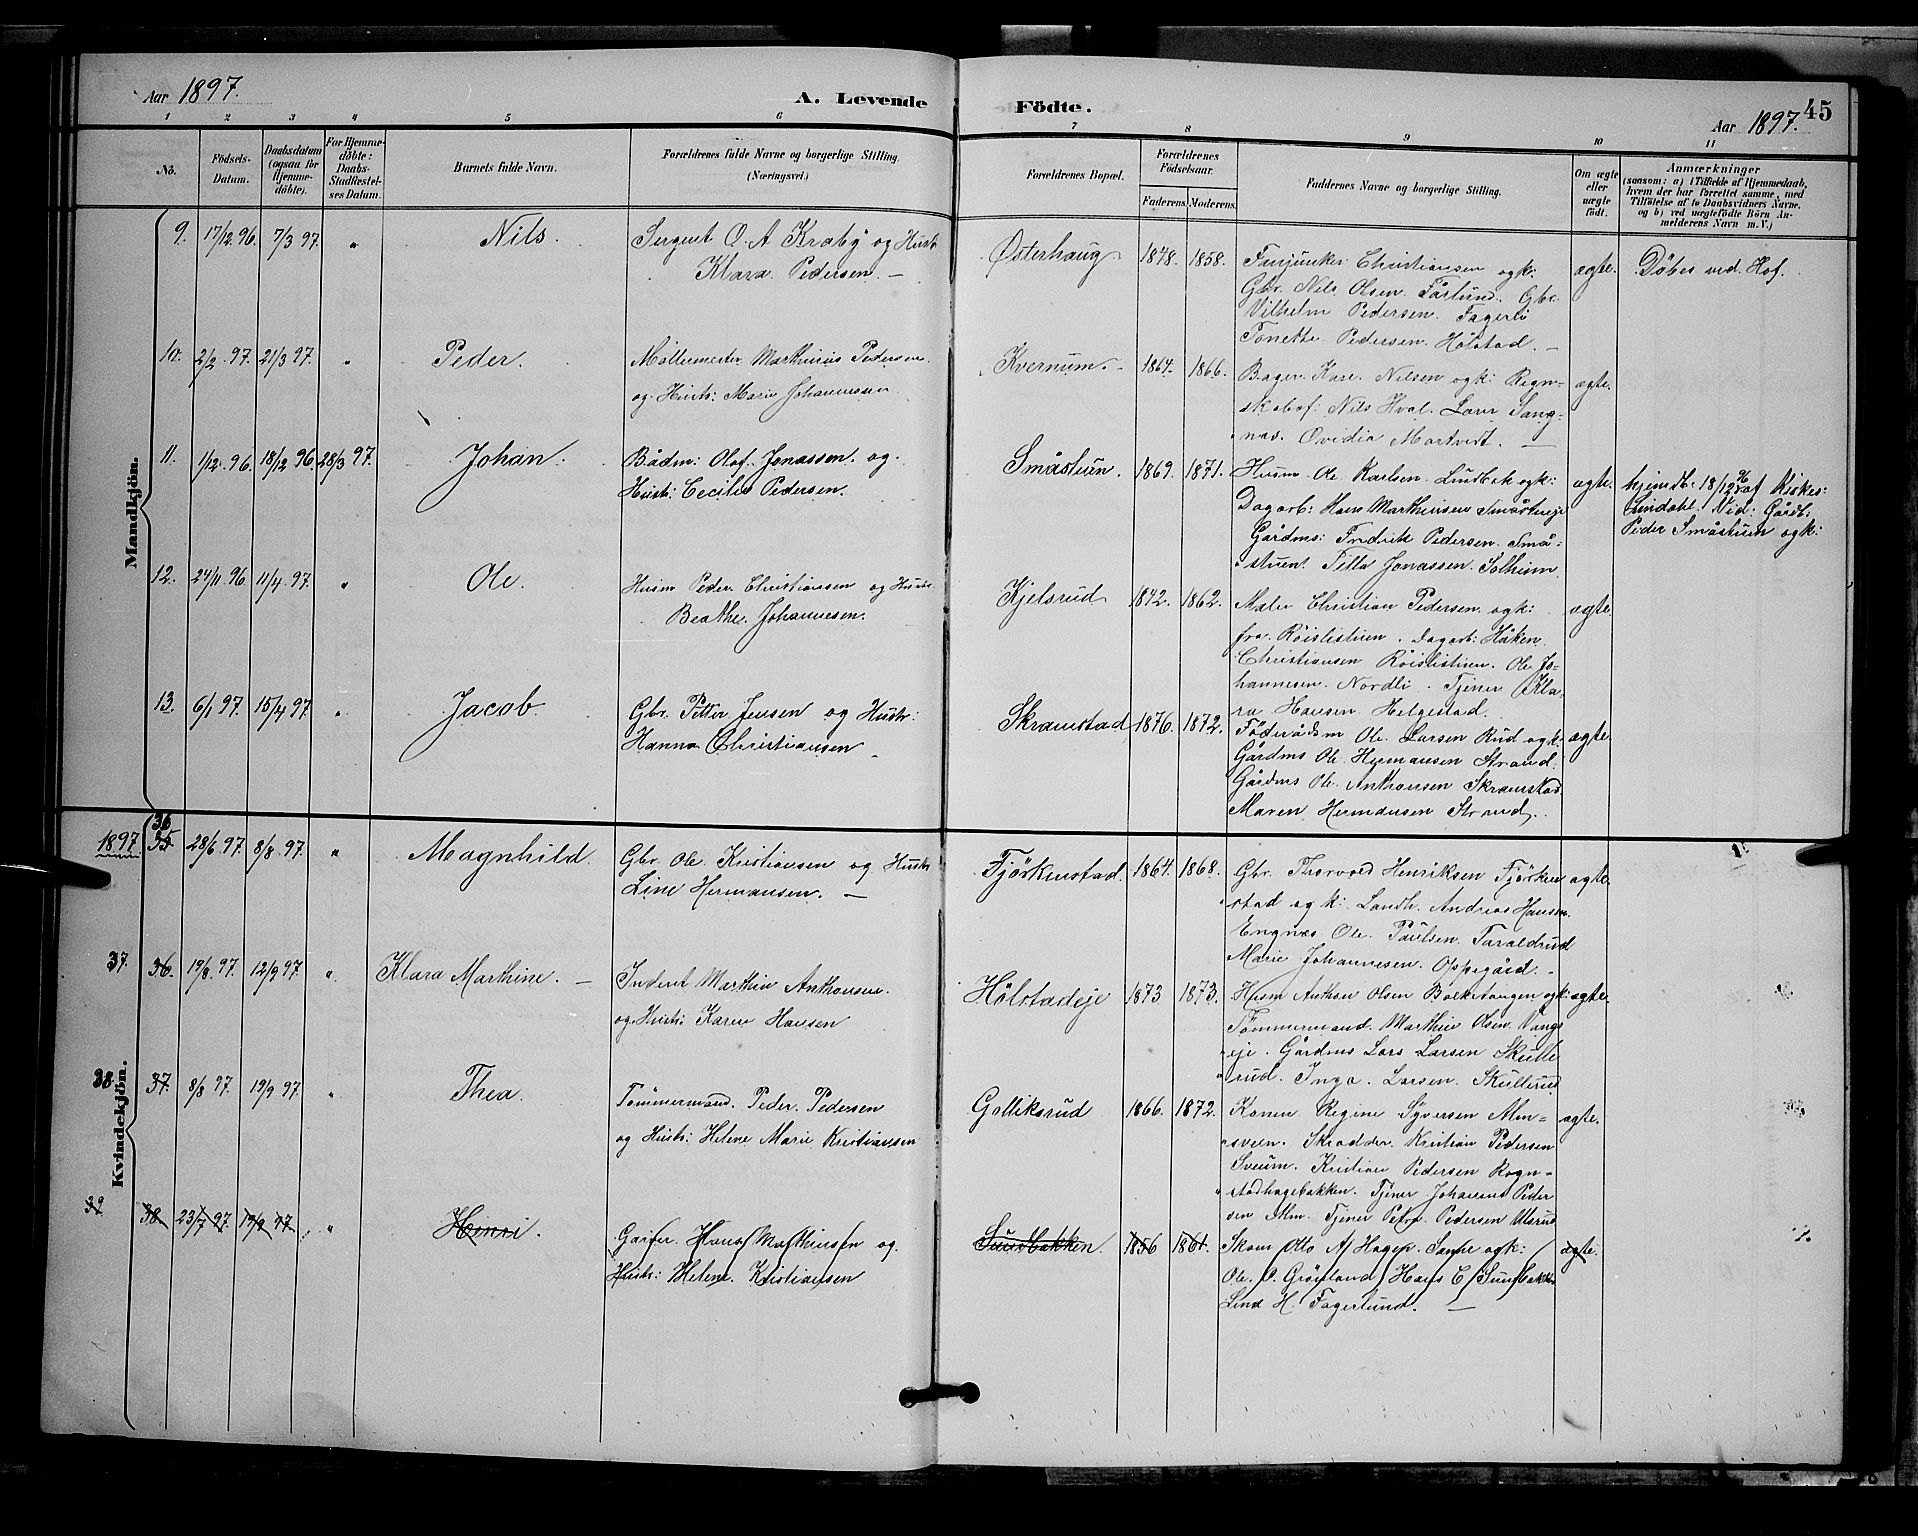 Aar 1897.
A. Levende
Födte.
45
Aar 1897.
1 2 3 4 5 6 7 8 9 10 11
No.
Födsels-Datum.
Daabsdatum (ogsaa for Hjemmedöbte).
For Hjemmedöbte: Daabs-Stadfæstelses Datum.
Barnets fulde Navn.
Forældrenes fulde Navne og borgerlige Stilling. (Næringsvei.)
Forældrenes Bopæl.
Forældrenes Födselsaar.
Faderens. Moderens.
Faddernes Navne og borgerlige Stilling.
Om ægte eller uægte födt.
Anmærkninger
(saasom: a) i Tilfælde af Hjemmedaab,
hvem der har forrettet samme, med
Tilföielse af to Daabsvidners Navne,
og b) ved uægtefödte Börn An-
melderens Navn m. V.)
Mandkjön.
9. 17/12 96. 7/3 97. " Nils.
Sergent O. A. Kraby og Hustr
Klara Pedersen. —
Østerhaug 1848. 1858.
Furjunker Christiansen ogk:
Gbr. Nils Olsen Fårlund. Gbr.
Vilhelm Pedersen. Fagerli
Tonette Pedersen. Hölstad. —
ægte. Döbes ved Hof.
10. 2/2 97. 21/3 97. " Peder.
Möllemester Marthinius Pedersen
og Hustr: Marie Johannessen
Kvernum. - 1864. 1866.
Bager Kare Nilsen ogk: Regn-
skabsf: Nils Hval. Lover Sang-
nas. Ovidia Martvedt. —
ægte.
11. 1/12 96. 18/12 96. 28/3 97. Johan.
Bådm: Olof Jonassen. og
Hustr: Cecilie Pedersen.
Småstuen. 1869. 1871.
Husm Ole Karlsen. Lundbak ogk:
Dagarb: Hans Marthinsen Småstueje
Gårdms: Fredrik Pedersen. Små-
stuen. Titta Jonassen. Solheim
ægte.
hjemdb: 18/12 96 af Kirkes:
Lindahl. Vid: Gårdb:
Peder Småstuen ogk:
12. 24/11 96. 11/4 97. " Ole.
Husm Peder Christiansen og Hustr
Beathe Johannesen.
Kjelsrud 1842. 1862.
Maler Christian Pedersen ogk:
fra Röislistuen. Dagarb: Håken
Christiansen Röislistuen. Ole Jo-
hannesen. Nordli. Tjener Kla-
ra Hansen. Helgestad.
ægte.
13. 6/1 97. 15/4 97. " Jacob.
Gbr. Petter Jensen og Hustr:
Hanna Christiansen -
Skramstad 1876. 1872.
Föderådsm Ole Larsen Rud ogk:
Gårdms Ole Hermansen Strand.
Gårdms Ole Anthonsen Skramstad
Maren Hermansen Strand.
ægte.
Kvindekjön.
1897 36 35 28/6 97. 8/8 97. " Magnhild.
Gbr. Ole Kristiansen og Hustr
Line Hermansen. —
Fjörkenstad. 1864. 1868.
Gbr. Thorvald Henriksen Fjörken
stad ogk: Landh. Andreas Hansen
Engnæs Ole Paulsen. Taraldrud
Marie Johannesen. Oppegård. -
ægte.
37. 36. 19/8 97. 12/9 97. " Klara Marthine. —
Inderst Marthin Anthonsen.
og Hustr: Karen Hansen
Hölstadeje 1873 1873.
Husm Anthon Olsen Bolketangen ogk:
Tömmermand. Marthin Olsen Vangs
eje. Gårdms Lars Larsen Skulle
rud. Inga Larsen. Skullerud
ægte.
38. 37. 8/8 97. 19/9 97. " Thea.
Tömmermand. Peder. Pedersen
og Hustr: Helene Marie Kristiansen
Golliksrud 1866. 1872.
Konen Regine Syversen Alm-
sveen. Skrædder. Kristian Pedersen
Sveum. Kristian Pedersen Rogn-
stadhagebakken. Tjener Johannes Peder
sen Alm. Tjener Petra Pedersen Ulsrud
ægte.
39 38 23/7 97. 19/9 97. " Henri.
Garfer. Hans Mathinsen og
Hustr: Helene. Kristiansen
Sundbakken. 1856 1861.
Skom Otto A. Hagep. Sanhe ogk:
Ole O. Grönland Hans C Sundbakken
Lina H. Fagerlund. —
ægte.